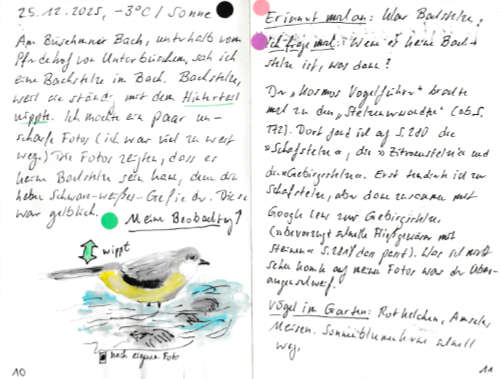 25.12.2025, -3°C / Sonne
Am Büschemer Bach, unterhalb vom
Pferdehof von Unterbüschem, sah ich
eine Bachstelze im Bach. Bachstelze,
weil sie ständig mit dem Hinterteil
wippte. Ich machte ein paar un-
scharfe Fotos (ich war viel zu weit
weg.) Die Fotos zeigten, dass es
keine Bachstelze sein kann, denn die
haben Schwarz-weißes Gefieder. Diese
war gelblich. Meine Beobachtung
wippt
nach eigenem Foto
10
Erinnert mal an: War Bachstelze,
Ich frage mal: Wenn es keine Bach-
stelze ist, was dann?
Der »Kosmos Vogelführer« brachte
mich zu den »Stelzenverwandte« (ab S.
272). Dort fand ich auf S. 280 die
»Schafstelze«, die »Zitronenstelze« und
die »Gebirgsstelze«. Erst tendierte ich zur
Schafstelze, aber dann zusammen mit
Google Lens zur Gebirgsstelze
(»bevorzugt schnelle Fließgewässer mit
Steinen« S. 281 dann passt). Was ich nicht
sehen konnte auf meinen Fotos war der
Vögel im Garten: Rotkehlchen, Amseln,
Meisen. Sonnenblumenkerne schnell
weg.
11